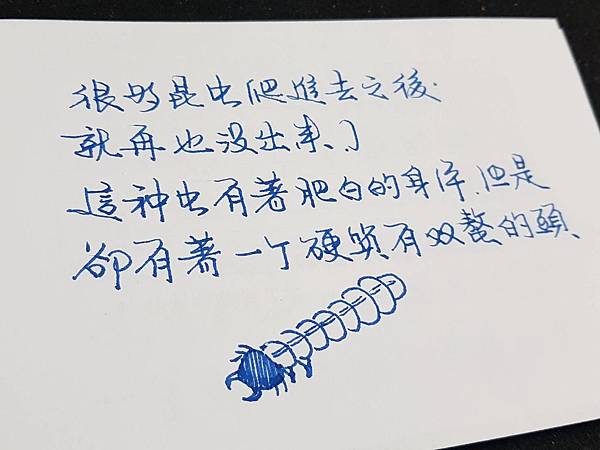 很多昆虫爬進去之後
就再也没出来了
這种虫有著肥白的身体.但是
卻有著一个硬質有双螯的頭、